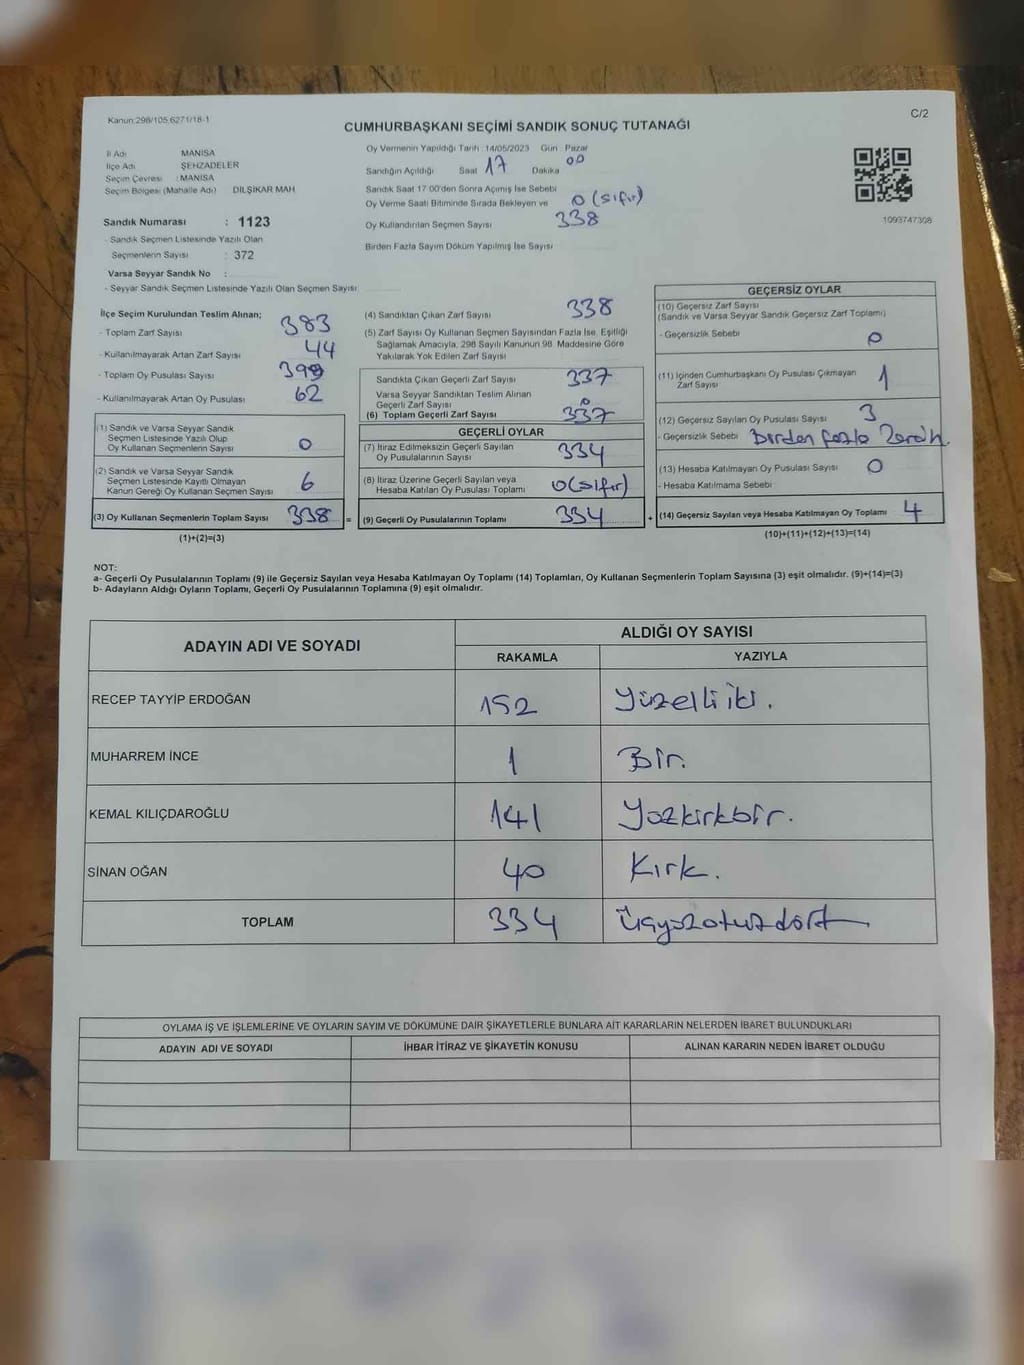 Kanun:298/105,6271/18-1
C/2
CUMHURBAŞKANI SEÇİMİ SANDIK SONUÇ TUTANAĞI
İl Adı MANİSA
İlçe Adı ŞEHZADELER
Seçim Çevresi : MANİSA
Seçim Bölgesi (Mahalle Adı) DİLŞİKAR MAH
Sandık Numarası : 1123
- Sandık Seçmen Listesinde Yazılı Olan
Seçmenlerin Sayısı : 372
Varsa Seyyar Sandık No :
- Seyyar Sandık Seçmen Listesinde Yazılı Olan Seçmen Sayısı:
Oy Vermenin Yapıldığı Tarih : 14/05/2023 Gün : Pazar
Sandığın Açıldığı Saat 17 Dakika 00
Sandık Saat 17:00'den Sonra Açılmış İse Sebebi
Oy Verme Saati Bitiminde Sırada Bekleyen ve 0 (sıfır)
Oy Kullandırılan Seçmen Sayısı 338
Birden Fazla Sayım Döküm Yapılmış İse Sayısı
1093747308
İlçe Seçim Kurulundan Teslim Alınan;
- Toplam Zarf Sayısı 383
- Kullanılmayarak Artan Zarf Sayısı 44
- Toplam Oy Pusulası Sayısı
- Kullanılmayarak Artan Oy Pusulası 62
(1) Sandık ve Varsa Seyyar Sandık
Seçmen Listesinde Yazılı Olup
Oy Kullanan Seçmenlerin Sayısı 0
(2) Sandık ve Varsa Seyyar Sandık
Seçmen Listesinde Kayıtlı Olmayan
Kanun Gereği Oy Kullanan Seçmen Sayısı 6
(3) Oy Kullanan Seçmenlerin Toplam Sayısı 338 =
(1)+(2)=(3)
(4) Sandıktan Çıkan Zarf Sayısı 338
(5) Zarf Sayısı Oy Kullanan Seçmen Sayısından Fazla İse, Eşitliği
Sağlamak Amacıyla, 298 Sayılı Kanunun 98. Maddesine Göre
Yakılarak Yok Edilen Zarf Sayısı
Sandıkta Çıkan Geçerli Zarf Sayısı 337
Varsa Seyyar Sandıktan Teslim Alınan
Geçerli Zarf Sayısı 0
(6) Toplam Geçerli Zarf Sayısı 337
GEÇERLİ OYLAR
(7) İtiraz Edilmeksizin Geçerli Sayılan
Oy Pusulalarının Sayısı 334
(8) İtiraz Üzerine Geçerli Sayılan veya
Hesaba Katılan Oy Pusulası Toplamı 0 (sıfır)
(9) Geçerli Oy Pusulalarının Toplamı 334 +
GEÇERSİZ OYLAR
(10) Geçersiz Zarf Sayısı
(Sandık ve Varsa Seyyar Sandık Geçersiz Zarf Toplamı)
- Geçersizlik Sebebi 0
(11) İçinden Cumhurbaşkanı Oy Pusulası Çıkmayan
Zarf Sayısı 1
(12) Geçersiz Sayılan Oy Pusulası Sayısı 3
- Geçersizlik Sebebi Birden fazla
(13) Hesaba Katılmayan Oy Pusulası Sayısı 0
- Hesaba Katılmama Sebebi
(14) Geçersiz Sayılan veya Hesaba Katılmayan Oy Toplamı 4
(10)+(11)+(12)+(13)=(14)
NOT:
a- Geçerli Oy Pusulalarının Toplamı (9) ile Geçersiz Sayılan veya Hesaba Katılmayan Oy Toplamı (14) Toplamları, Oy Kullanan Seçmenlerin Toplam Sayısına (3) eşit olmalıdır. (9)+(14)=(3)
b- Adayların Aldığı Oyların Toplamı, Geçerli Oy Pusulalarının Toplamına (9) eşit olmalıdır.
ADAYIN ADI VE SOYADI
ALDIĞI OY SAYISI
RAKAMLA YAZIYLA
RECEP TAYYİP ERDOĞAN 152 Yüzelliiki.
MUHARREM İNCE 1 Bir.
KEMAL KILIÇDAROĞLU 141 Yüzkırkbir.
SİNAN OĞAN 40 Kırk.
TOPLAM 334 Üçyüzotuzdört
OYLAMA İŞ VE İŞLEMLERİNE VE OYLARIN SAYIM VE DÖKÜMÜNE DAİR ŞİKAYETLERLE BUNLARA AİT KARARLARIN NELERDEN İBARET BULUNDUKLARI
ADAYIN ADI VE SOYADI İHBAR İTİRAZ VE ŞİKAYETİN KONUSU ALINAN KARARIN NEDEN İBARET OLDUĞU